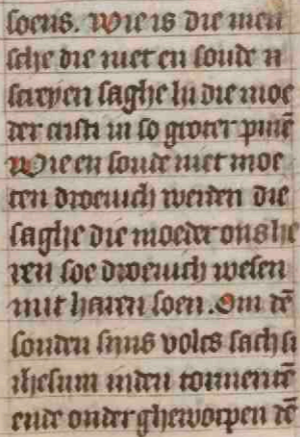 soens. Wie is die men
sche die niet en soude
screyen saghe hi die moe
der cristi in so groter pinē
Wie en soude niet moe
ten droeuich werden die
saghe die moeder ons he
ren soe droeuich wesen
mit haren soen. Om dē
sonden sijns volcs sach si
ihesum inden tormentē
ende ondergheworpen dē